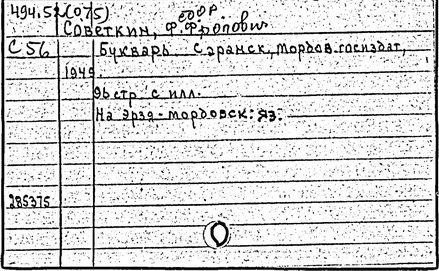 494.5(075)
Советкин, Ф. Фролович
С 56 Букварь. Саранск, Мордов. госиздат,
1949.
96 стр. с илл.
На Эрзя-мордовск. яз.
285375